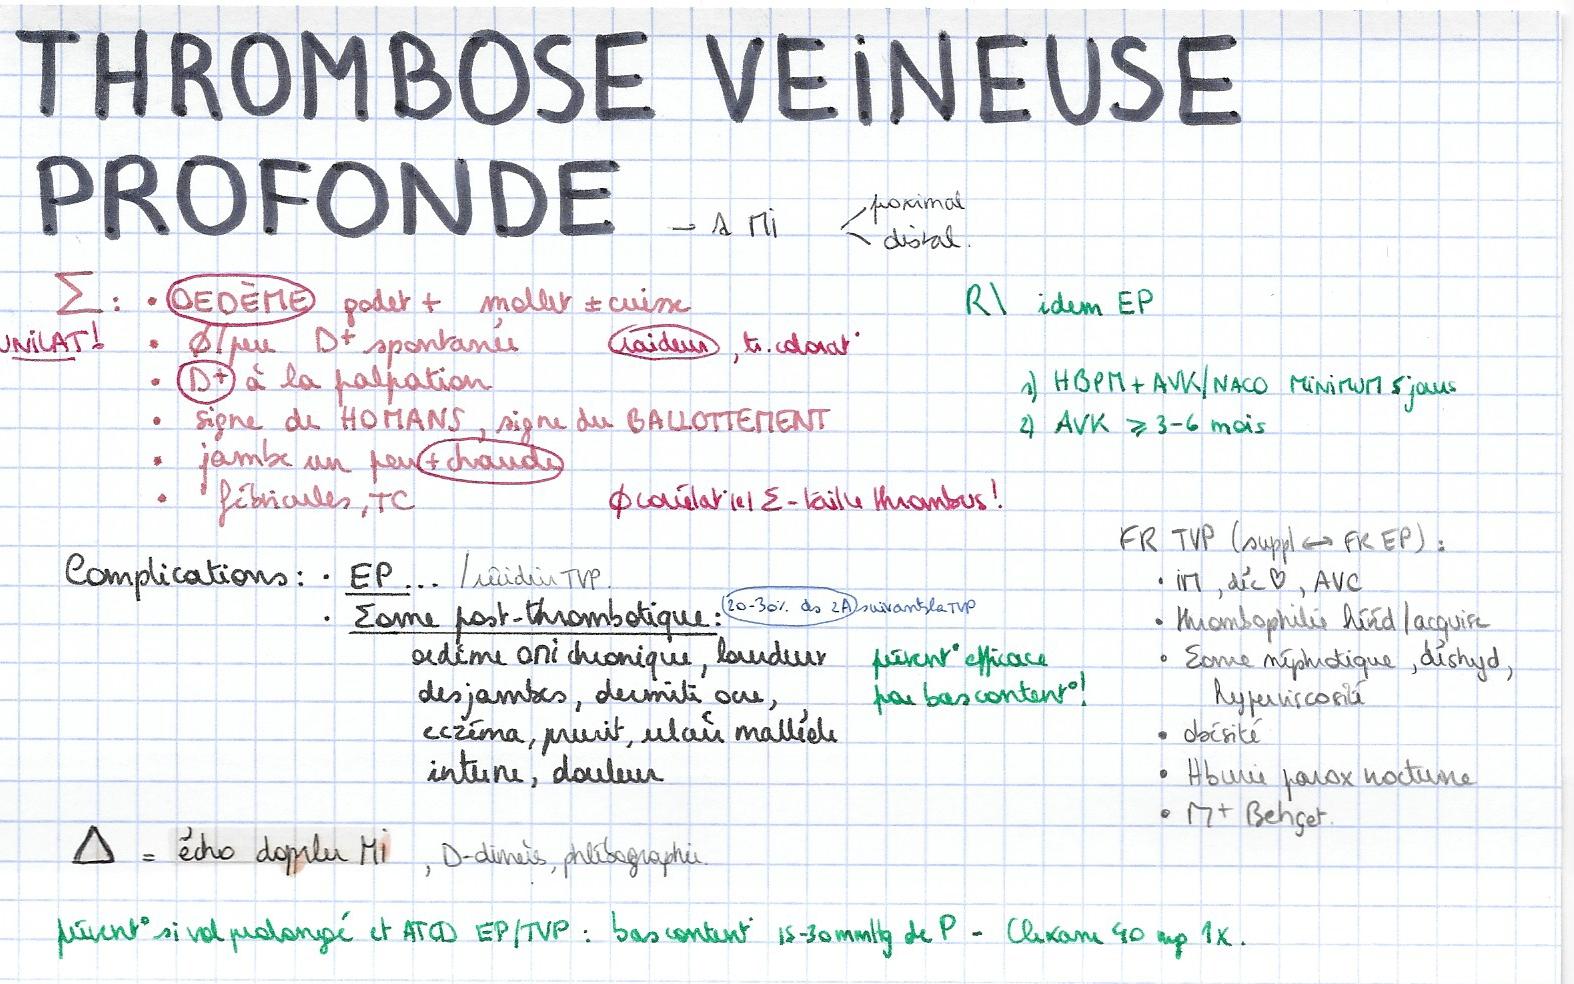 THROMBOSE VEINEUSE
PROFONDE
→ Δ MI < proximal
distal.
Σ : • OEDÈME godet + mollet ± cuisse
UNILAT! • Ø/peu D+ spontanée raideur, tr. colorat°
• D+ à la palpation
• signe de HOMANS, signe du BALLOTTEMENT
• jambe un peu + chaude
• fébricules, TC
Ø corrélat° Σ - taille thrombus!
R\ idem EP
1) HBPM + AVK/NACO MINIMUM 5 jours
2) AVK ⩾ 3-6 mois
Complications : • EP... / récidive TVP.
• Σome post-thrombotique : 20-30% ds 2A suivant la TVP
oedème OMI chronique, lourdeur
des jambes, dermite ocre,
eczéma, prurit, ulcère malléole
interne, douleur
prévent° efficace
par bas content°!
FR TVP (suppl ↔ FR EP) :
• IM, déc ♡, AVC
• thrombophilie héréd/acquise
• Σome néphrotique, déshyd,
hyperviscosité
• obésité
• Hburie parox nocturne
• M+ Behçet.
Δ = écho doppler MI, D-dimères, phlébographie.
prévent° si vol prolongé et ATCD EP/TVP : bas content° 15-30mmHg de P - Clexane 40 mg 1x.